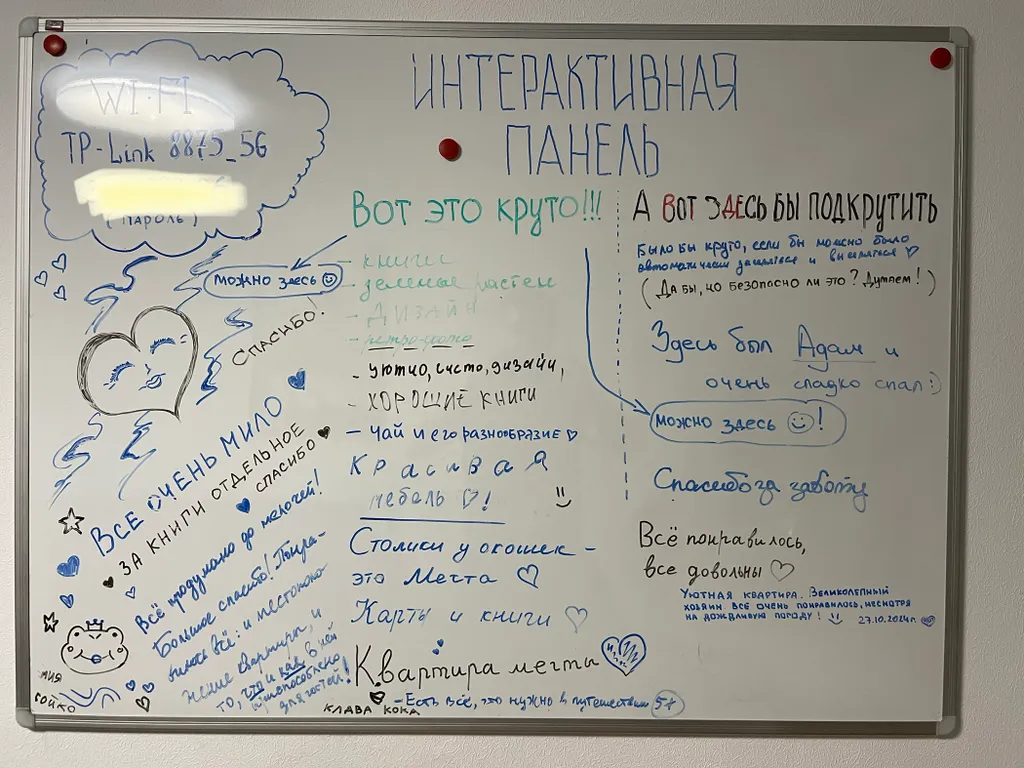 WI-FI
TP-Link 8875_5G
(ПАРОЛЬ)
ИНТЕРАКТИВНАЯ
ПАНЕЛЬ
Вот это круто!!!
можно здесь
- книги
- зеленые растен
- Дизайн
- ретро-фото
- уютно, чисто, дизайн,
- ХОРОШИЕ КНИГИ
- ЧАЙ И его разнообразие
Красивая
мебель !
Столики у окошек -
это Мечта
Карты и книги
Квартира мечты
- Есть всё, это нужно в путешествии 5+
КЛАВА КОКА
А ВОТ ЗДЕСЬ БЫ ПОДКРУТИТЬ
Было бы круто, если бы можно было
автоматически и
(Да бы, но безопасно ли это? Думаем!)
Здесь был Адам и
очень сладко спал :)
можно здесь !
Спасибо за заботу
Всё понравилось,
все довольны
Уютная квартира. Великолепный
хозяин. Всё очень понравилось, несмотря
на дождливую погоду! 27.10.2024г.
Спасибо!
ВСЕ ОЧЕНЬ МИЛО
ЗА КНИГИ ОТДЕЛЬНОЕ
СПАСИБО
Всё продумано до мелочей!
Большое спасибо! Понра-
вилось всё: и местополо-
жение квартиры, и
то, что и как в ней
приспособлено
для гостей!
МИЯ
БОЙКО